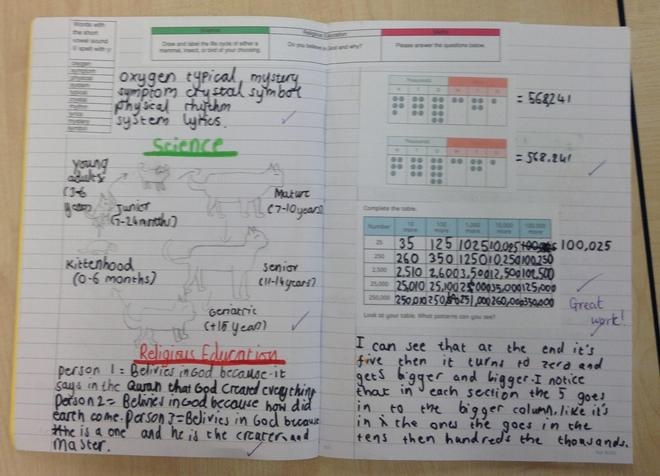 Words with
the short
vowel sound
/i/ spelt with y
oxygen
symptom
physical
system
typical
crystal
rhythm
lyrics
mystery
symbol
Science
Draw and label the life cycle of either a
mammal, insect, or bird of your choosing.
Religious Education
Do you believe in God and why?
Maths
Please answer the questions below.
oxygen typical mystery
symptom crystal symbol
physical rhythm
system lyrics.
Science
young
adults
(3-6
years)
Junior
(7-24months)
Mature
(7-10years)
Kittenhood
(0-6 months)
Senior
(11-14years)
Geriatric
(+15 years)
Religious Education
person 1 = Belivies in God because it
says in the Quran that God created everything
Person 2= Belivies in God because how did
earth come. Person 3=Belivies in God because
he is a one and he is the creater and
master.
Thousands
H T O H T O
= 568,241
Thousands
H T O H T O
= 568.241
Complete the table.
Number 10 more 100 more 1,000 more 10,000 more 100,000 more
25 35 125 1025 10,025 100,025
250 260 350 1250 10,250 100,250
2,500 2,510 2,600 3,500 12,500 102,500
25,000 25,010 25,100 35,000 125,000
250,000 250,010 251,000 260,000 350,000
Look at your table. What patterns can you see?
Great
work!
I can see that at the end it's
five then it turns to zero and
gets bigger and bigger. I notice
that in each section the 5 goes
in to the bigger column. like it's
in the ones the goes in the
tens then hundreds the thousands.